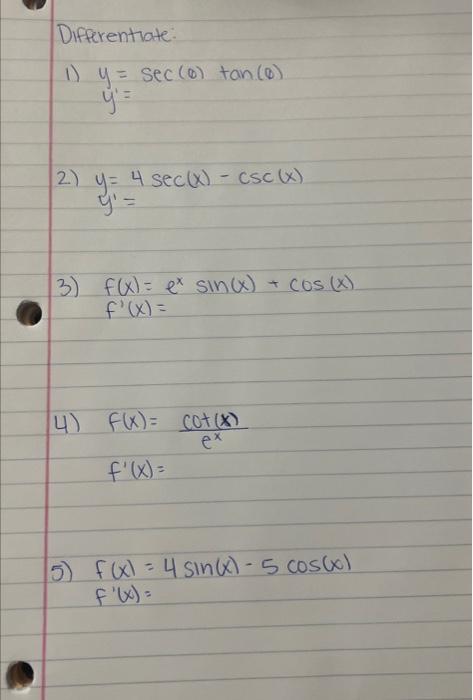 Differentiate:
1) y = sec(θ) tan(θ)
y' =
2) y = 4 sec(x) - csc(x)
y' =
3) f(x) = eˣ sin(x) + cos(x)
f'(x) =
4) f(x) = cot(x)
eˣ
f'(x) =
5) f(x) = 4 sin(x) - 5 cos(x)
f'(x) =